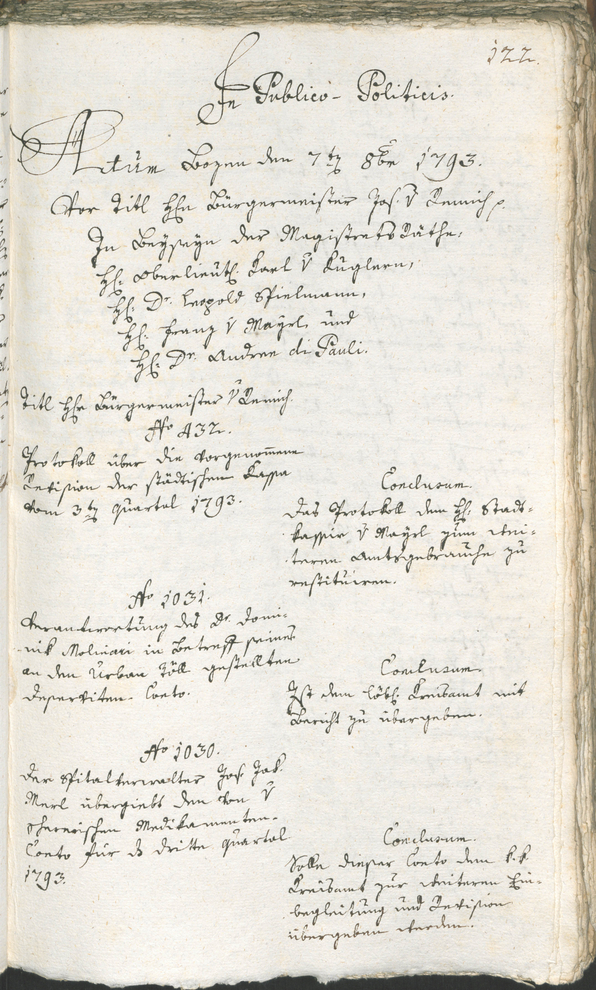 122.
In Publico-Politicis.
Actum Bozen den 7ten 8br 1793.
Vor Titl Hhn Bürgermeister Jos. v Remich
In Beyseyn der Magistrats Räthe,
Hh. Oberlieuth. Karl v Kuglern,
Hh. Dr. Leopold Spielmann,
Hh. Franz v Mayrl, und
Hh. Dr. Andree di Pauli.
Titl Hhr Bürgermeister v Remich.
No 432.
Protokoll über die vorgenommene
Revision der städtischen Kassa
vom 3ten Quartal 1793.
Conclusum.
Das Protokoll dem Hh. Stadt-
kassir v Mayrl zum wei-
teren Amtsgebrauche zu
restituiren.
No 1031.
Verantwortung des Dr. Domi-
nik Molinari in Betreff seines
an den Urban Töll gestellten
Deserviten-Conto.
Conclusum.
Ist dem löbl. Kreisamt mit
Bericht zu übergeben.
No 1030.
Der Spitalverwalter Jos. Jak.
Merl übergiebt den von v
Medikamenten-
Conto für das dritte Quartal
1793.
Conclusum.
Solle dieser Conto dem k.k.
Kreisamt zur weiteren Ein-
begleitung und Revision
übergeben werden.